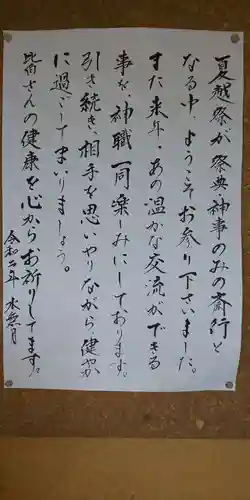 夏越祭が祭典神事のみの斎行と
なる中、ようこそお参り下さいました。
また来年、あの温かな交流ができる
事を、神職一同楽しみにしております。
引き続き、相手を思いやりながら健やか
に過ごしてまいりましょう。
皆さんの健康を心からお祈りしてます。
令和二年 水無月